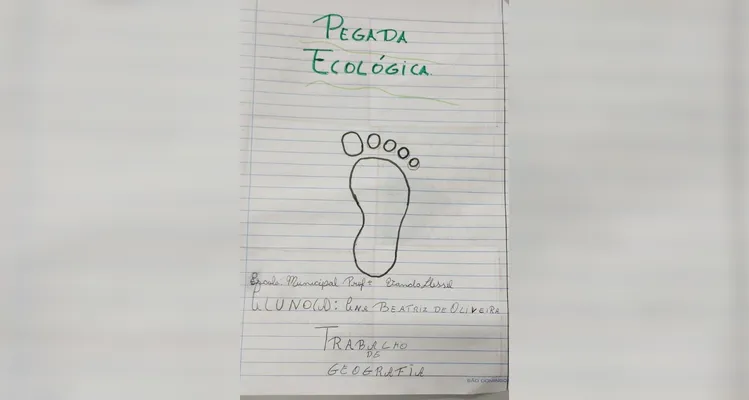 PEGADA
ECOLÓGICA.
Escola Municipal Prof
ALUNO(A): Ana BEATRIZ DE OLIVEIRA
TRABALHO
DE
GEOGRAFIA
SÃO DOMINGOS